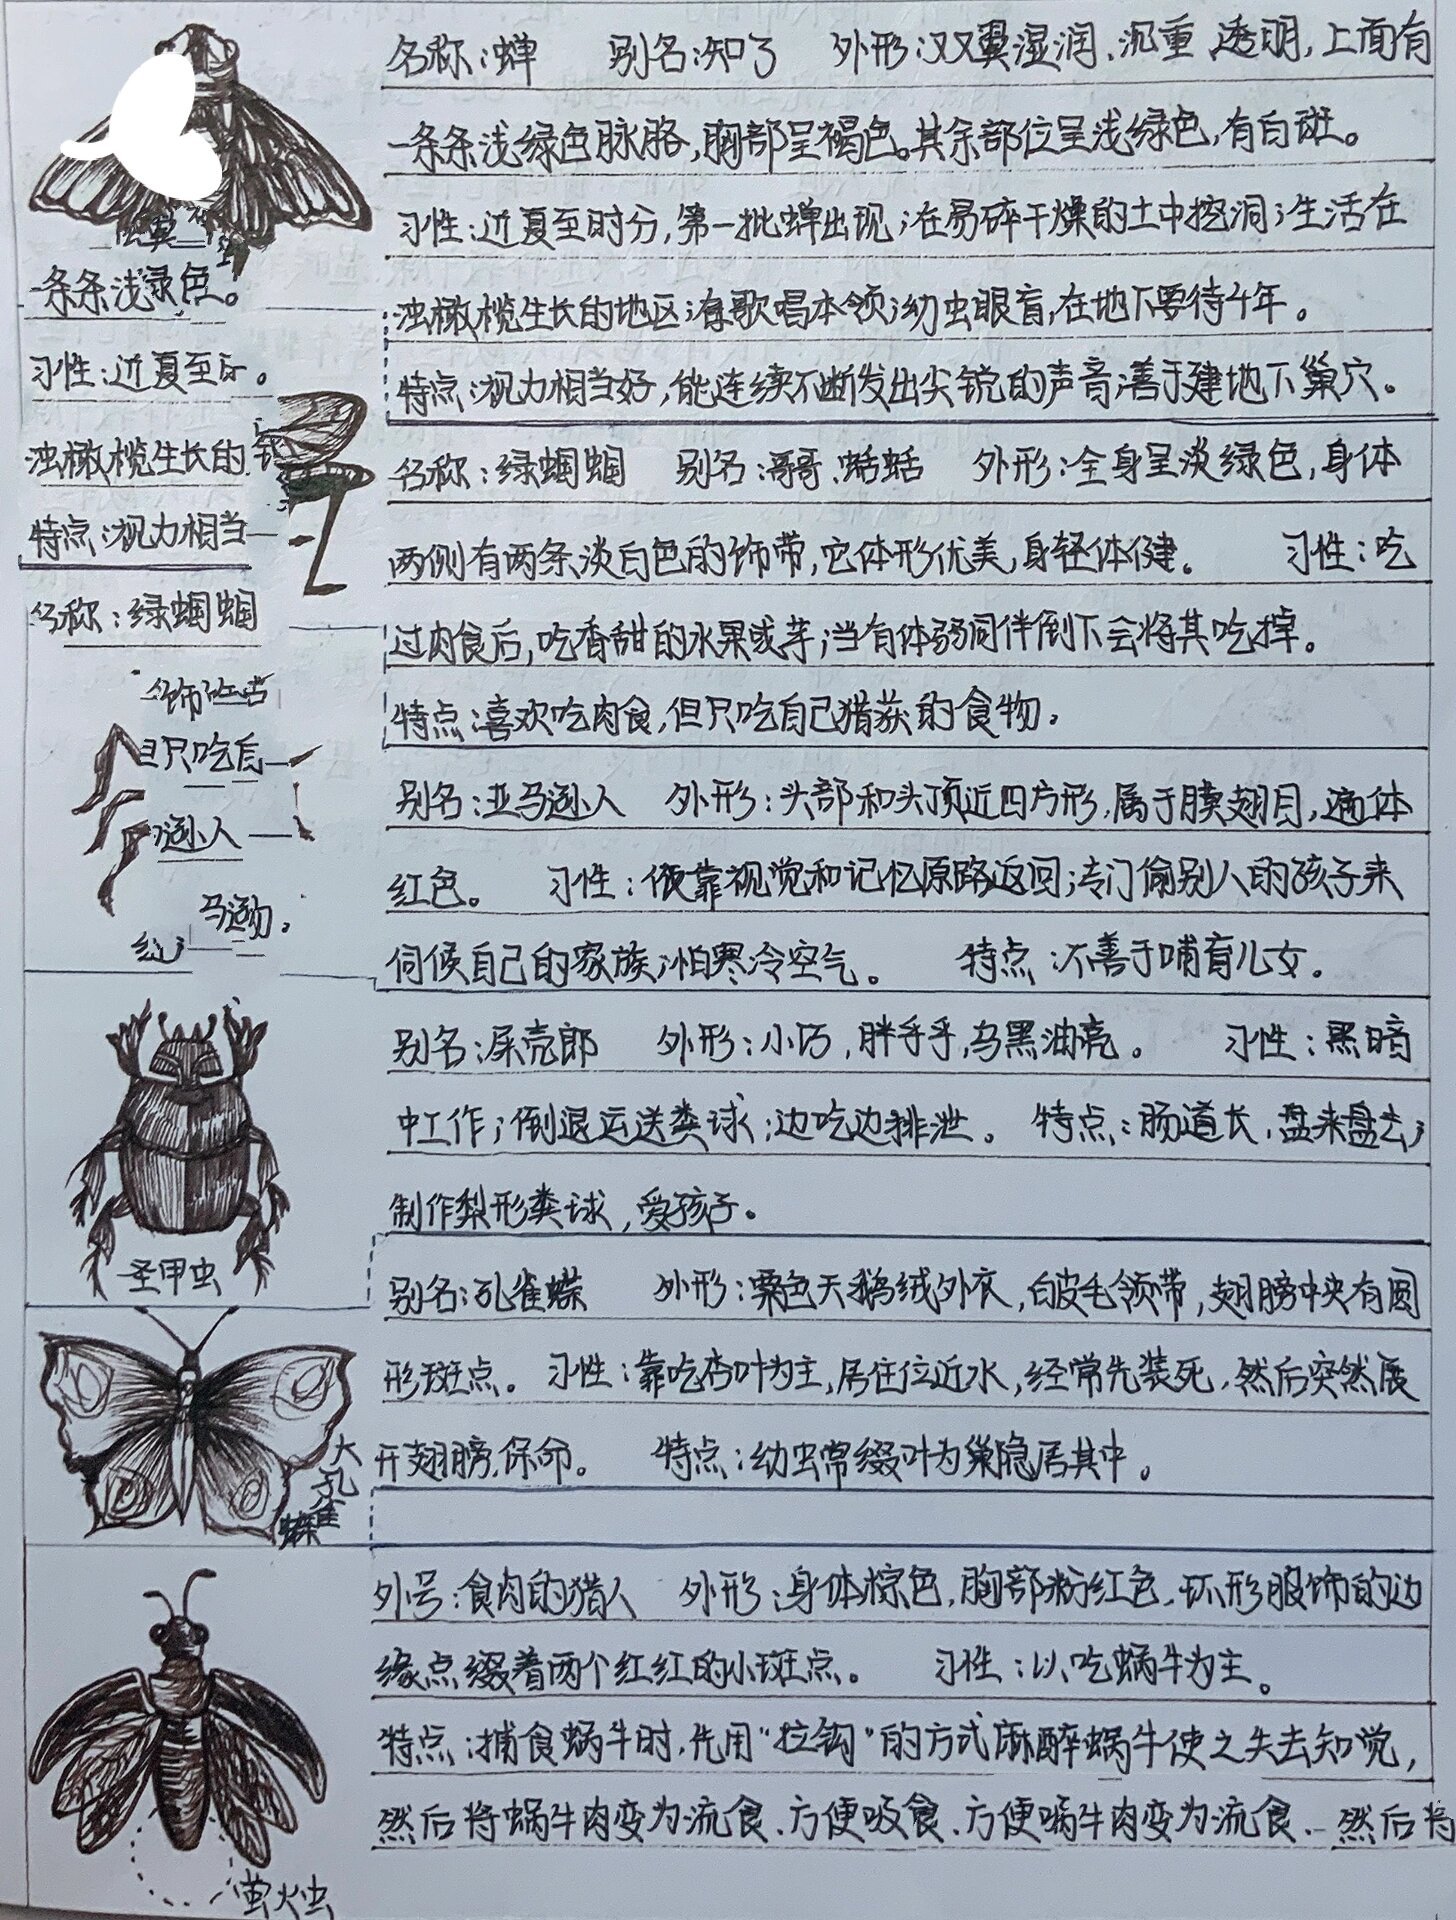 名称:蝉 别名:知了 外形:双翼湿润、沉重、透明,上面有
一条条浅绿色脉胳,胸部呈褐色。其余部位呈浅绿色,有白斑。
习性:近夏至时分,第一批蝉出现;在易碎干燥的土中挖洞;生活在
浊橄榄生长的地区;有歌唱本领;幼虫眼盲,在地下要待4年。
特点:视力相当好,能连续不断发出尖锐的声音;善于建地下巢穴。
一条条浅绿色。
习性:近夏至
浊橄榄生长的
特点:视力相当
名称:绿蝈蝈
但只吃自
逊人
名称:绿蝈蝈 别名:哥哥、蛞蛞 外形:全身呈淡绿色,身体
两侧有两条淡白色的饰带,它体形优美,身轻体健。 习性:吃
过肉食后,吃香甜的水果或芽;当有体弱同伴倒下会将其吃掉。
特点:喜欢吃肉食,但只吃自己猎获的食物。
别名:亚马逊人 外形:头部和头顶近四方形,属于膜翅目,遍体
红色。 习性:依靠视觉和记忆原路返回;专门偷别人的孩子来
伺候自己的家族;怕寒冷空气。 特点:不善于哺育儿女。
圣甲虫
别名:屎壳郎 外形:小巧,胖乎乎,乌黑油亮。 习性:黑暗
中工作;倒退运送粪球;边吃边排泄。 特点:肠道长,盘来盘去;
制作梨形粪球,爱孩子。
大孔雀蝶
别名:孔雀蝶 外形:栗色天鹅绒外衣,白皮毛领带,翅膀中央有圆
形斑点。 习性:靠吃杏叶为主,居住位近水,经常先装死,然后突然展
开翅膀,保命。 特点:幼虫常缀叶为巢隐居其中。
萤火虫
外号:食肉的猎人 外形:身体棕色,胸部粉红色,环形服饰的边
缘点缀着两个红红的小斑点。 习性:以吃蜗牛为主。
特点:捕食蜗牛时,先用“拉钩”的方式麻醉蜗牛使之失去知觉,
然后将蜗牛肉变为流食、方便吸食、方便蜗牛肉变为流食、然后将